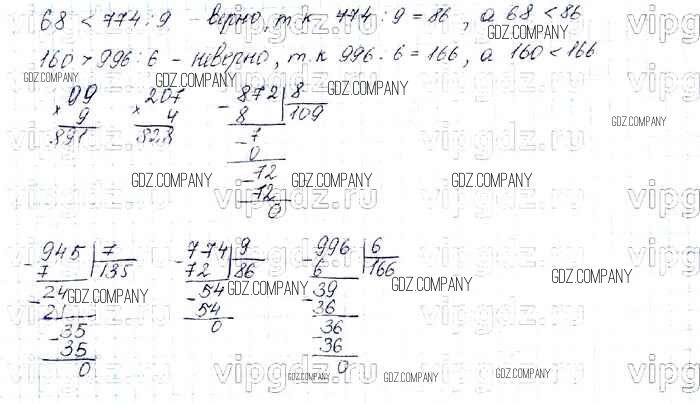 68 < 774 : 9 - верно, т.к 774 : 9 = 86, а 68 < 86
160 > 996 : 6 - неверно, т.к 996 : 6 = 166, а 160 < 166
× 99 × 207 - 872 | 8
9 4 8 | 109
891 828 - 7
0
- 72
72
0
- 945 | 7 - 774 | 9 - 996 | 6
7 | 135 72 | 86 6 | 166
- 24 - 54 - 39
21 54 36
- 35 0 - 36
35 36
0 0
GDZ.COMPANY
GDZ.COMPANY
GDZ.COMPANY
GDZ.COMPANY
GDZ.COMPANY
GDZ.COMPANY
GDZ.COMPANY
GDZ.COMPANY
GDZ.COMPANY
GDZ.COMPANY
GDZ.COMPANY
GDZ.COMPANY
GDZ.COMPANY
GDZ.COMPANY
vipgdz.ru
vipgdz.ru
vipgdz.ru
vipgdz.ru